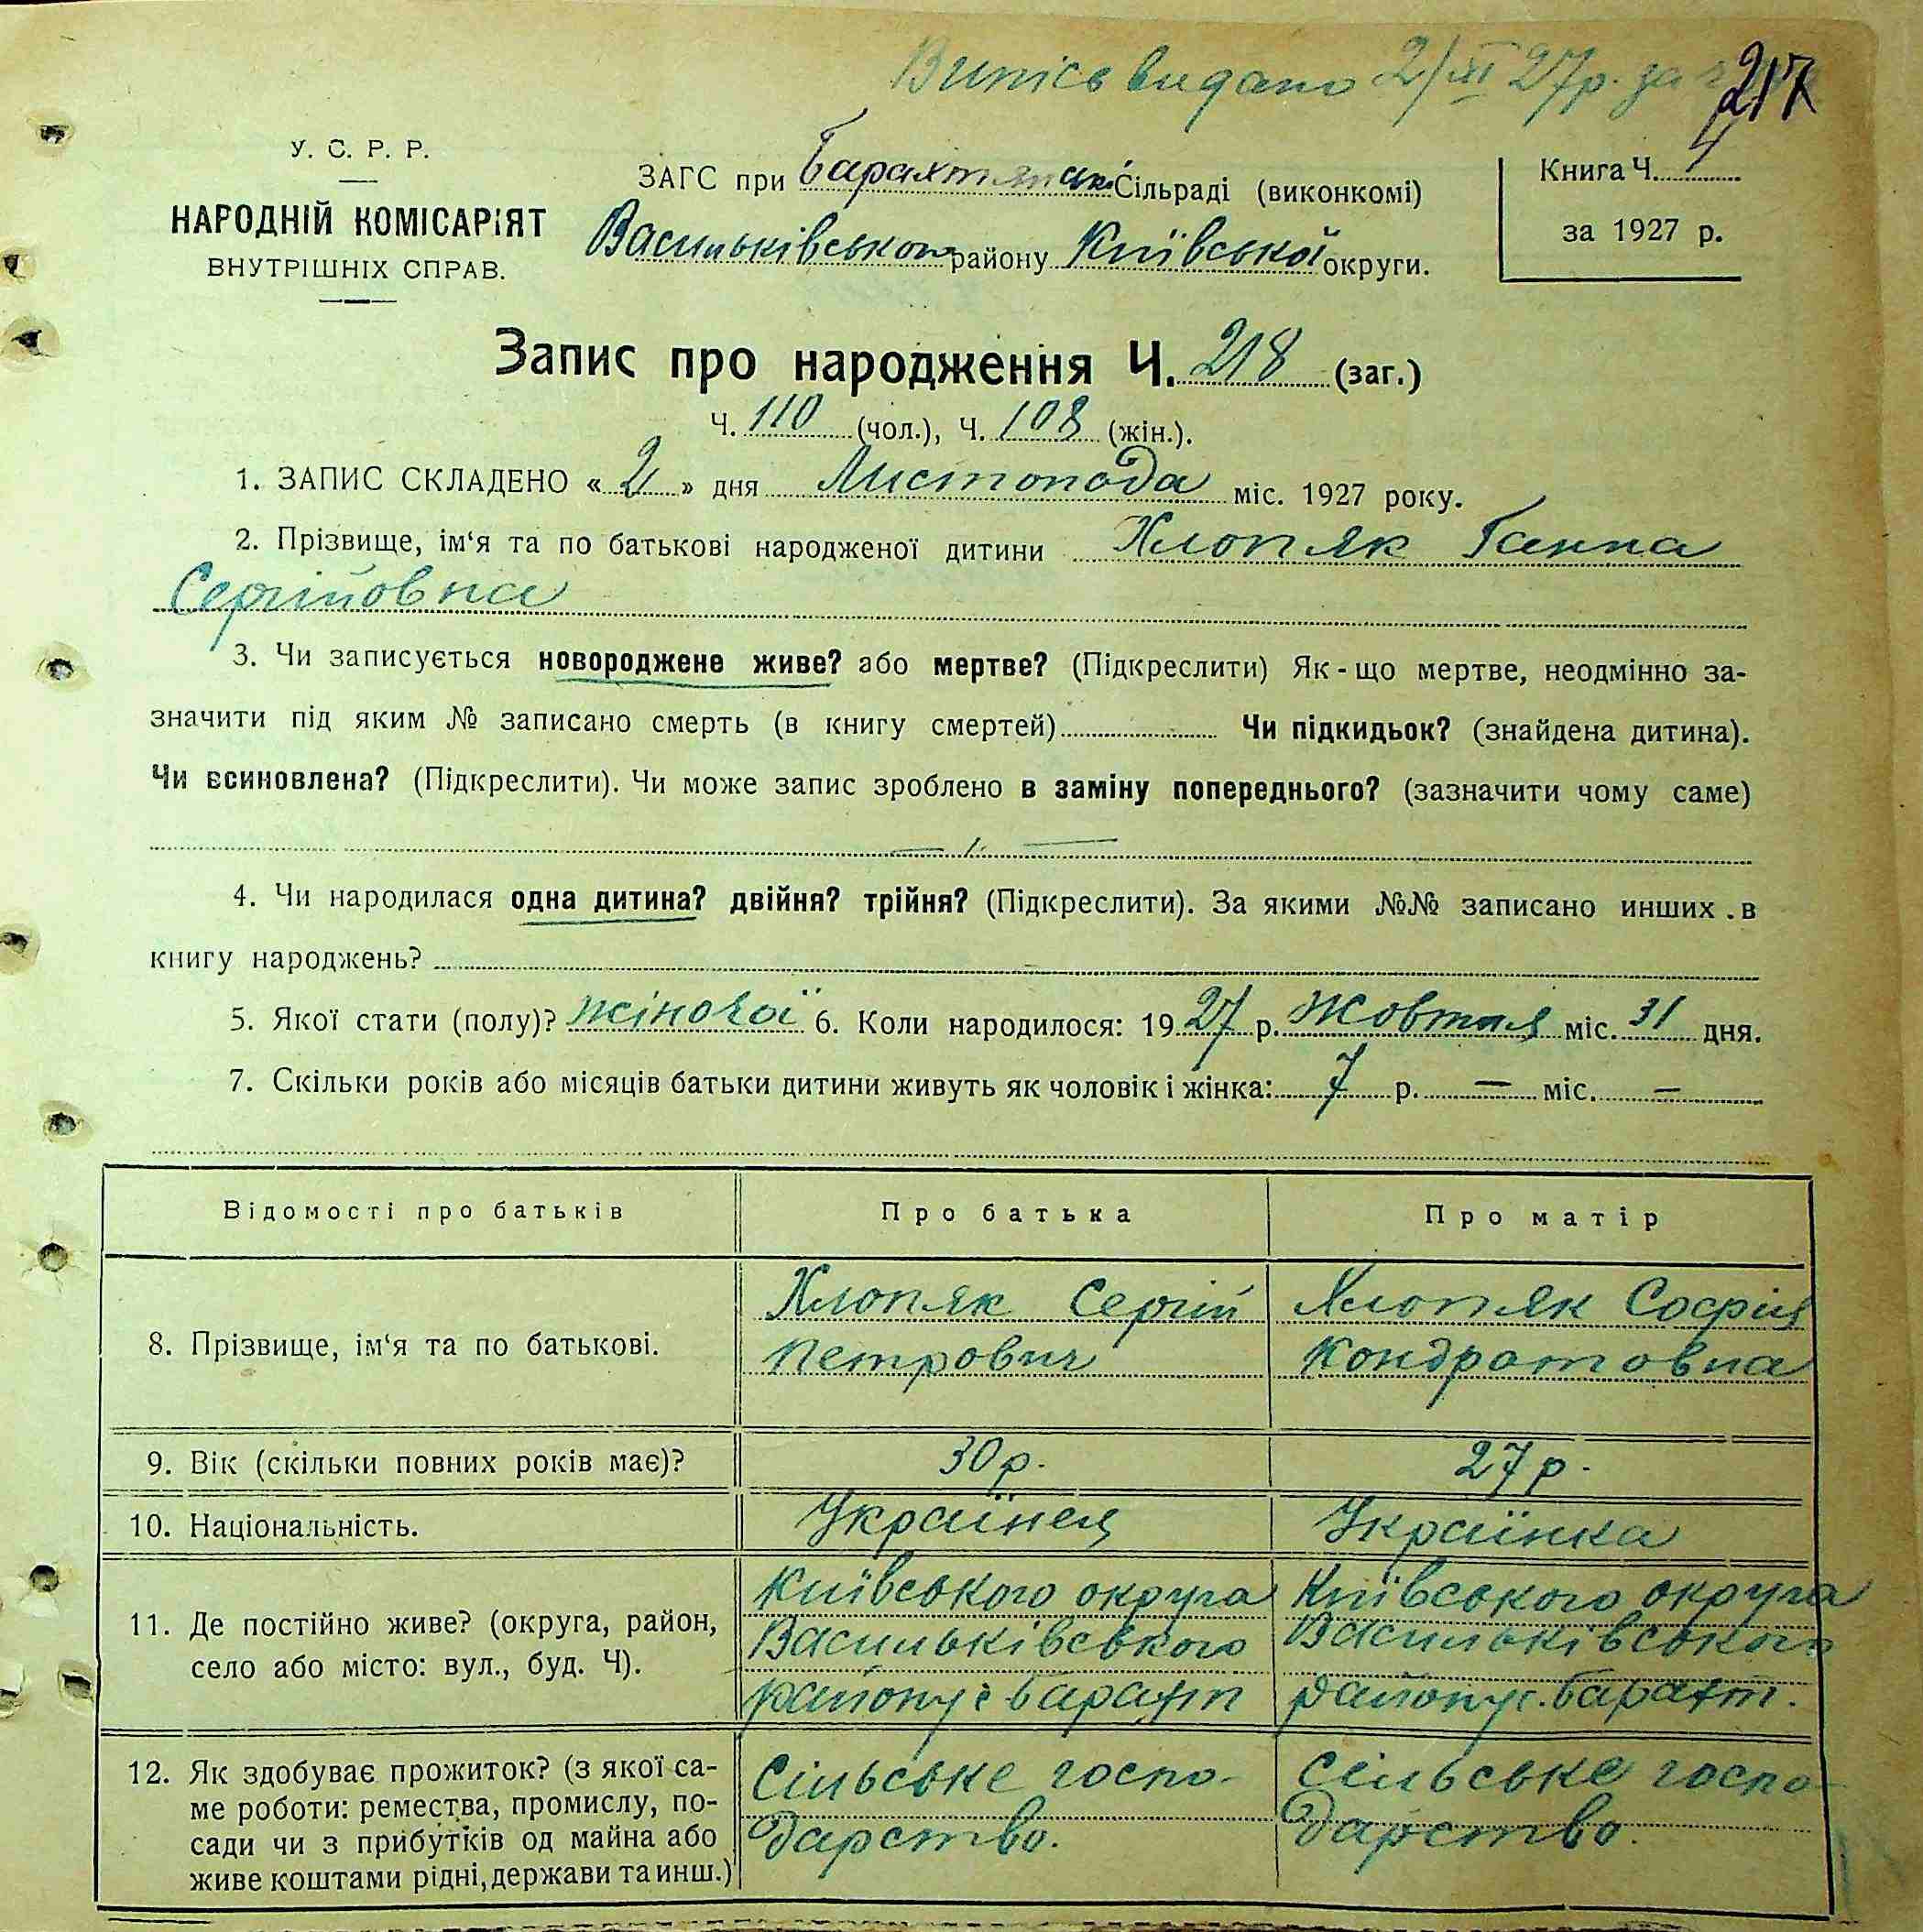 Випісь видано 2/XI 27р. за
217
У. С. Р. Р.
НАРОДНІЙ КОМІСАРІЯТ
ВНУТРІШНІХ СПРАВ.
ЗАГС при Барахтянськ. Сільраді (виконкомі)
Васильківського району Київської округи.
Книга Ч. 4
за 1927 р.
Запис про народження Ч. 218 (заг.)
Ч. 110 (чол.), Ч. 108 (жін.).
1. ЗАПИС СКЛАДЕНО «2» дня Листопода міс. 1927 року.
2. Прізвище, ім‘я та по батькові народженої дитини Хлопяк Ганна
Сергійовна
3. Чи записується новороджене живе? або мертве? (Підкреслити) Як-що мертве, неодмінно за-
значити під яким № записано смерть (в книгу смертей) Чи підкидьок? (знайдена дитина).
Чи всиновлена? (Підкреслити). Чи може запис зроблено в заміну попереднього? (зазначити чому саме)
4. Чи народилася одна дитина? двійня? трійня? (Підкреслити). За якими №№ записано инших в
книгу народжень?
5. Якої стати (полу)? жіночої 6. Коли народилося: 1927 р. Жовтня міс. 31 дня.
7. Скільки років або місяців батьки дитини живуть як чоловік і жінка: 7 р. — міс. —
Відомості про батьків Про батька Про матір
8. Прізвище, ім‘я та по батькові.
Хлопяк Сергій
Петрович
Хлопяк Софія
Кондратовна
9. Вік (скільки повних років має)? 30 р. 27 р.
10. Національність. Українец Українка
11. Де постійно живе? (округа, район,
село або місто: вул., буд. Ч).
Київського округа
Васильківського
району с Барахт
Київського округа
Васильківського
району с. Барахт.
12. Як здобуває прожиток? (з якої са-
ме роботи: ремества, промислу, по-
сади чи з прибутків од майна або
живе коштами рідні, держави та инш.)
Сільське госпо-
дарство.
Сільське госпо-
дарство.